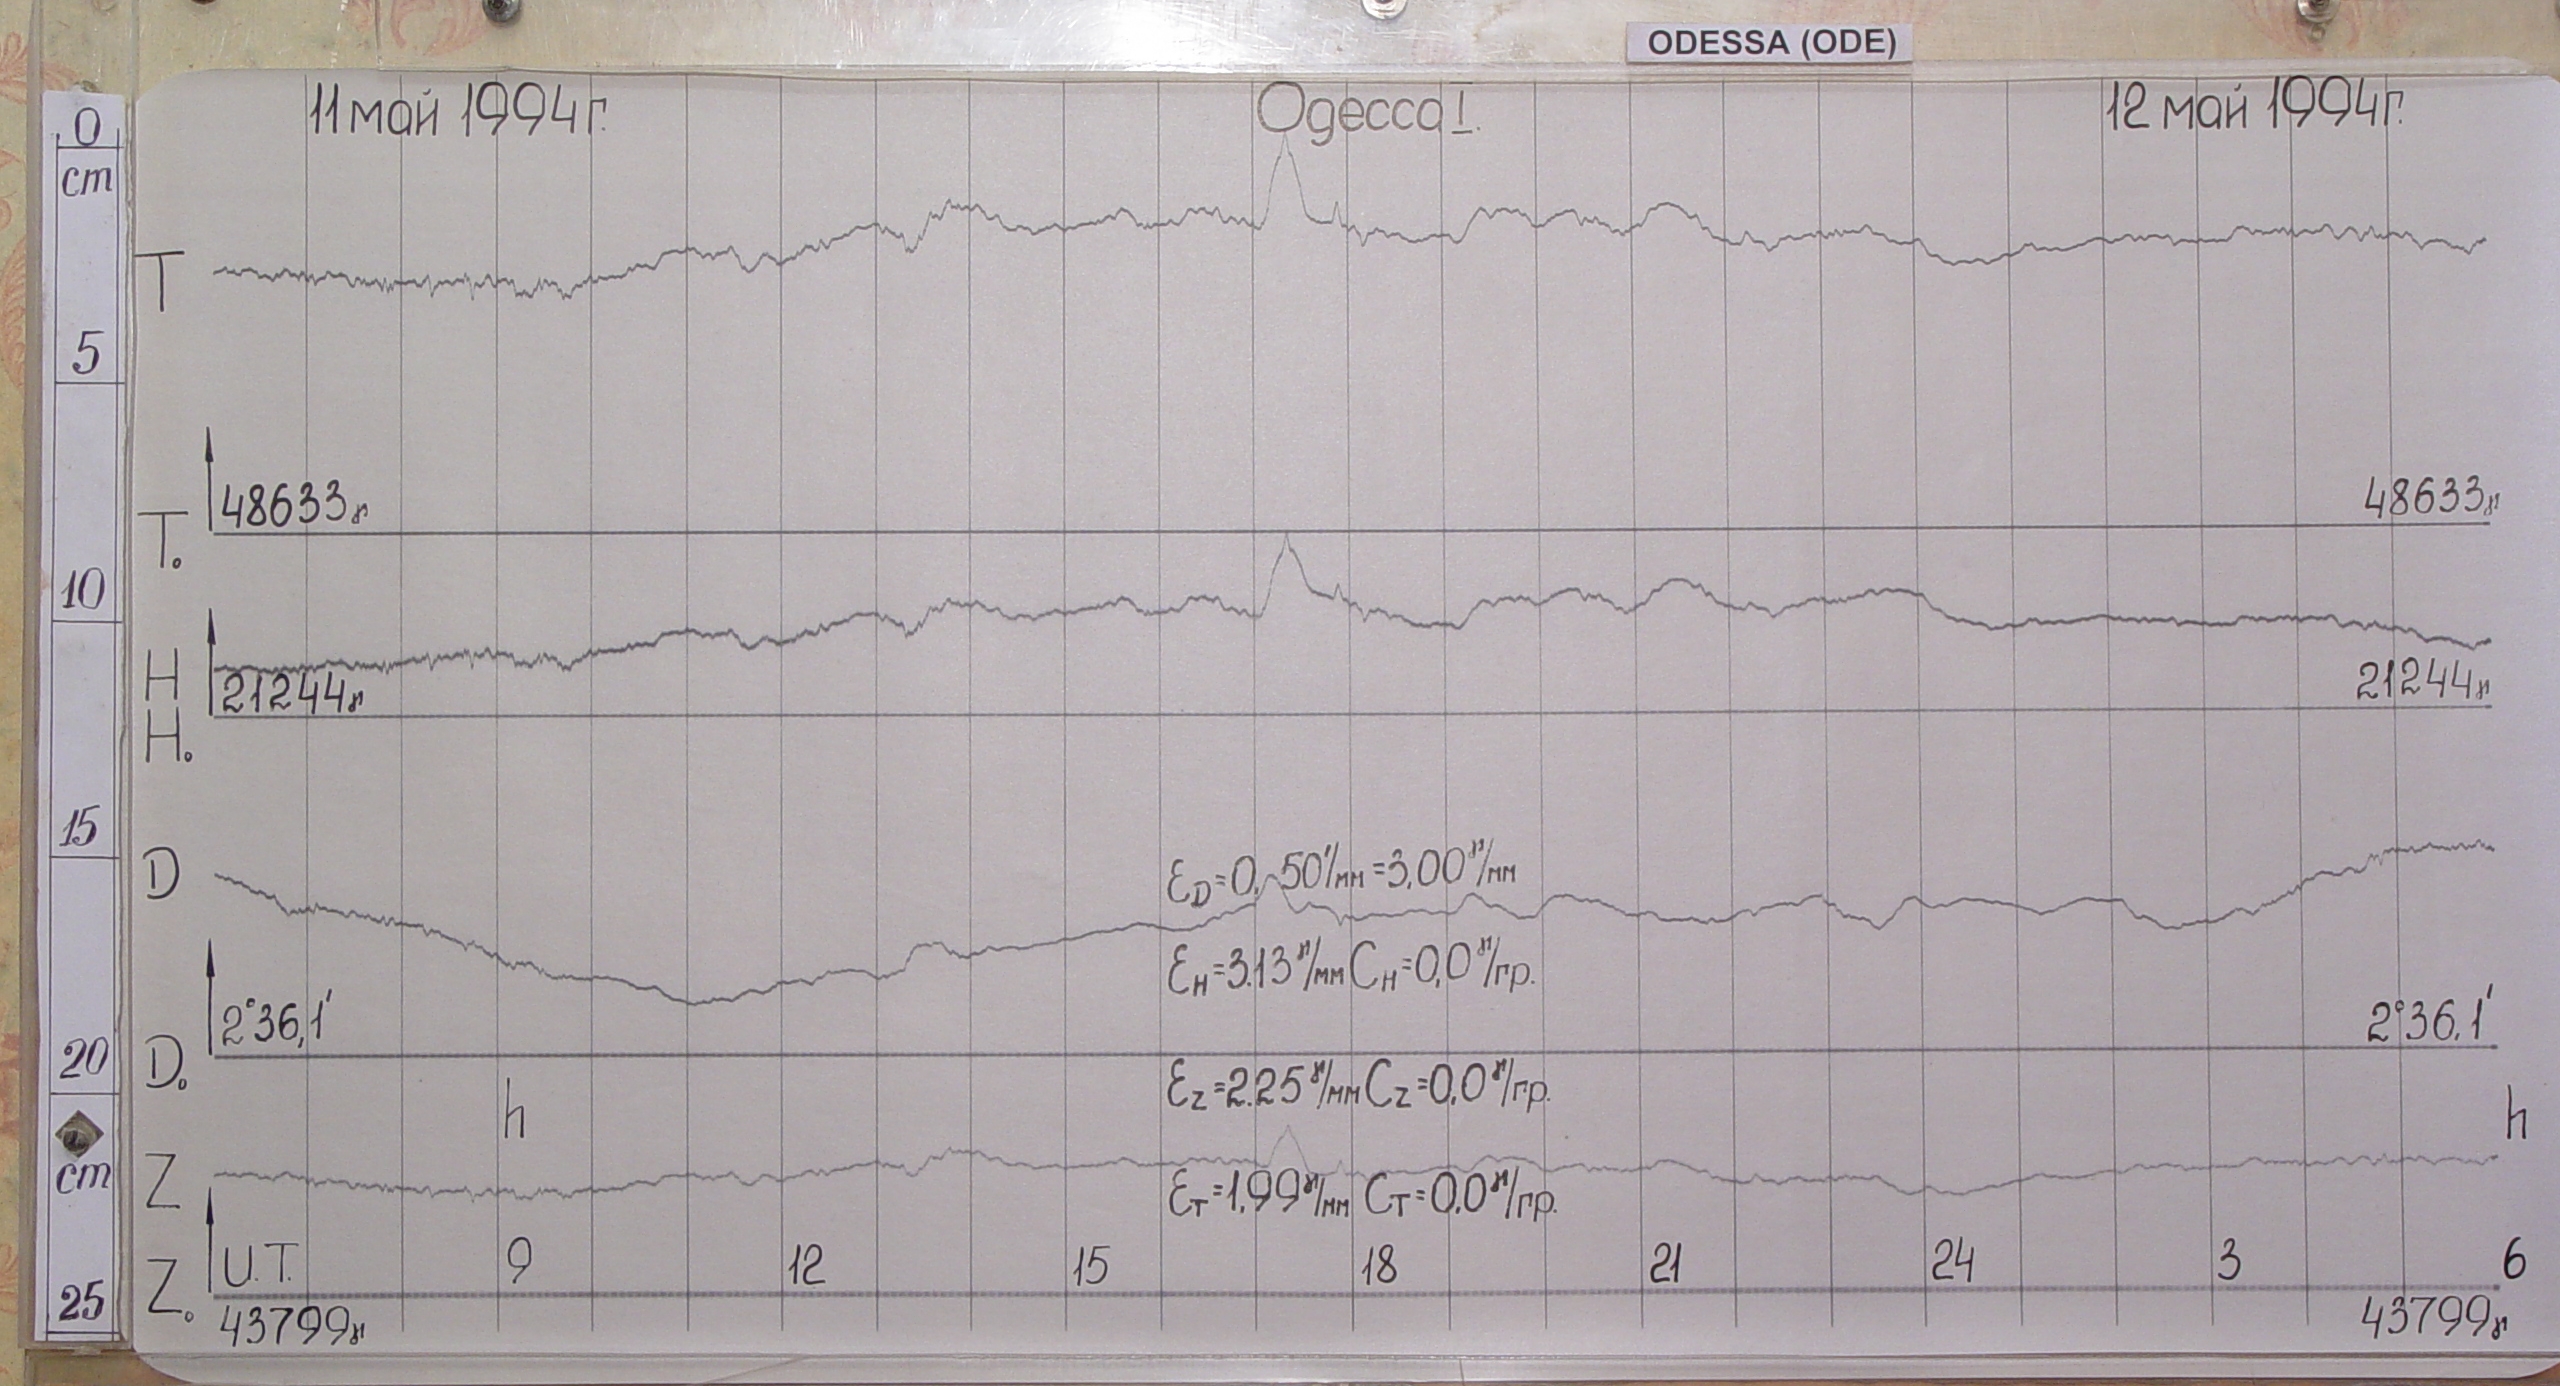 ODESSA (ODE)
11 май 1994г. Одесса I. 12 май 1994г.
0
cm
T
5
48633γ 48633γ
T.
10
H
21244γ 21244γ
H.
15
D
ƐD=0,50'/мм=3,00γ/мм
ƐH=3.13γ/мм CH=0,0γ/гр.
2°36,1' 2°36.1'
20
D.
ƐZ=2.25γ/мм CZ=0,0γ/гр.
h h
cm
Z
ƐT=1,99γ/мм CT=0.0γ/гр.
U.T. 9 12 15 18 21 24 3 6
25
Z.
43799γ 43799γ